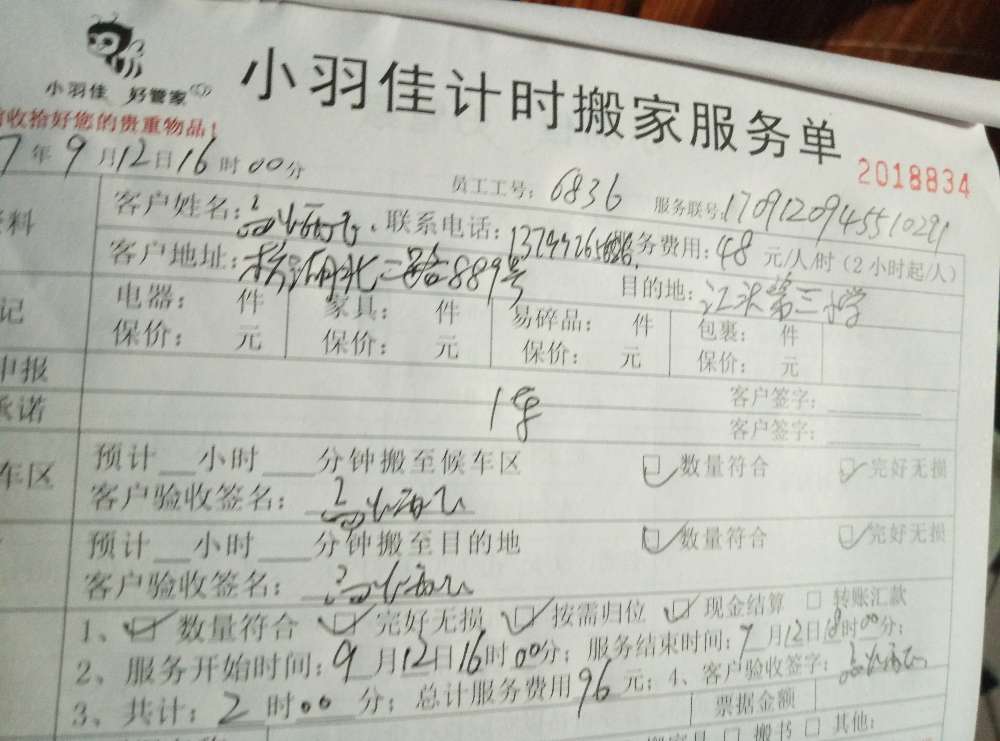 小羽佳 好管家
小羽佳计时搬家服务单
收拾好您的贵重物品！
2018834
7年9月12日16时00分
员工工号：6836
服务联号：170912094551029
客户姓名： 联系电话： 服务费用：48元/人/时（2小时起/人）
客户地址：北二路889号 目的地：江头第三小学
电器： 件 家具： 件 易碎品： 件 包裹： 件
保价： 元 保价： 元 保价： 元 保价： 元
申报
客户签字：
承诺
1车
客户签字：
车区
预计 小时 分钟搬至候车区 数量符合 完好无损
客户验收签名：
预计 小时 分钟搬至目的地 数量符合 完好无损
客户验收签名：
1、数量符合 完好无损 按需归位 现金结算 转账汇款
2、服务开始时间：9月12日16时00分；服务结束时间：9月12日18时00分；
3、共计：2时00分；总计服务费用96元；4、客户验收签字：
票据金额
搬书 其他：